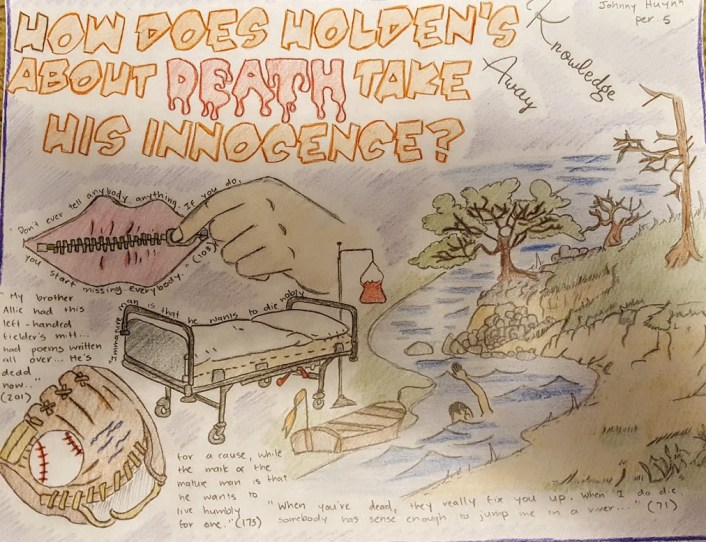 HOW DOES HOLDEN'S
Knowledge
ABOUT DEATH TAKE
Away
HIS INNOCENCE?
Johnny Huynh
per. 5
"Don't ever tell anybody anything. If you do,
you start missing everybody."
"My brother
Allie had this
left-handed
fielder's mitt...
had poems written
all over... He's
dead
now..."
(201)
"Immature man is that he wants to die nobly
for a cause, while
the mark of the
mature man is that
he wants to
live humbly
for one." (173)
"When you're dead, they really fix you up. When I do die
somebody has sense enough to jump me in a river..." (71)